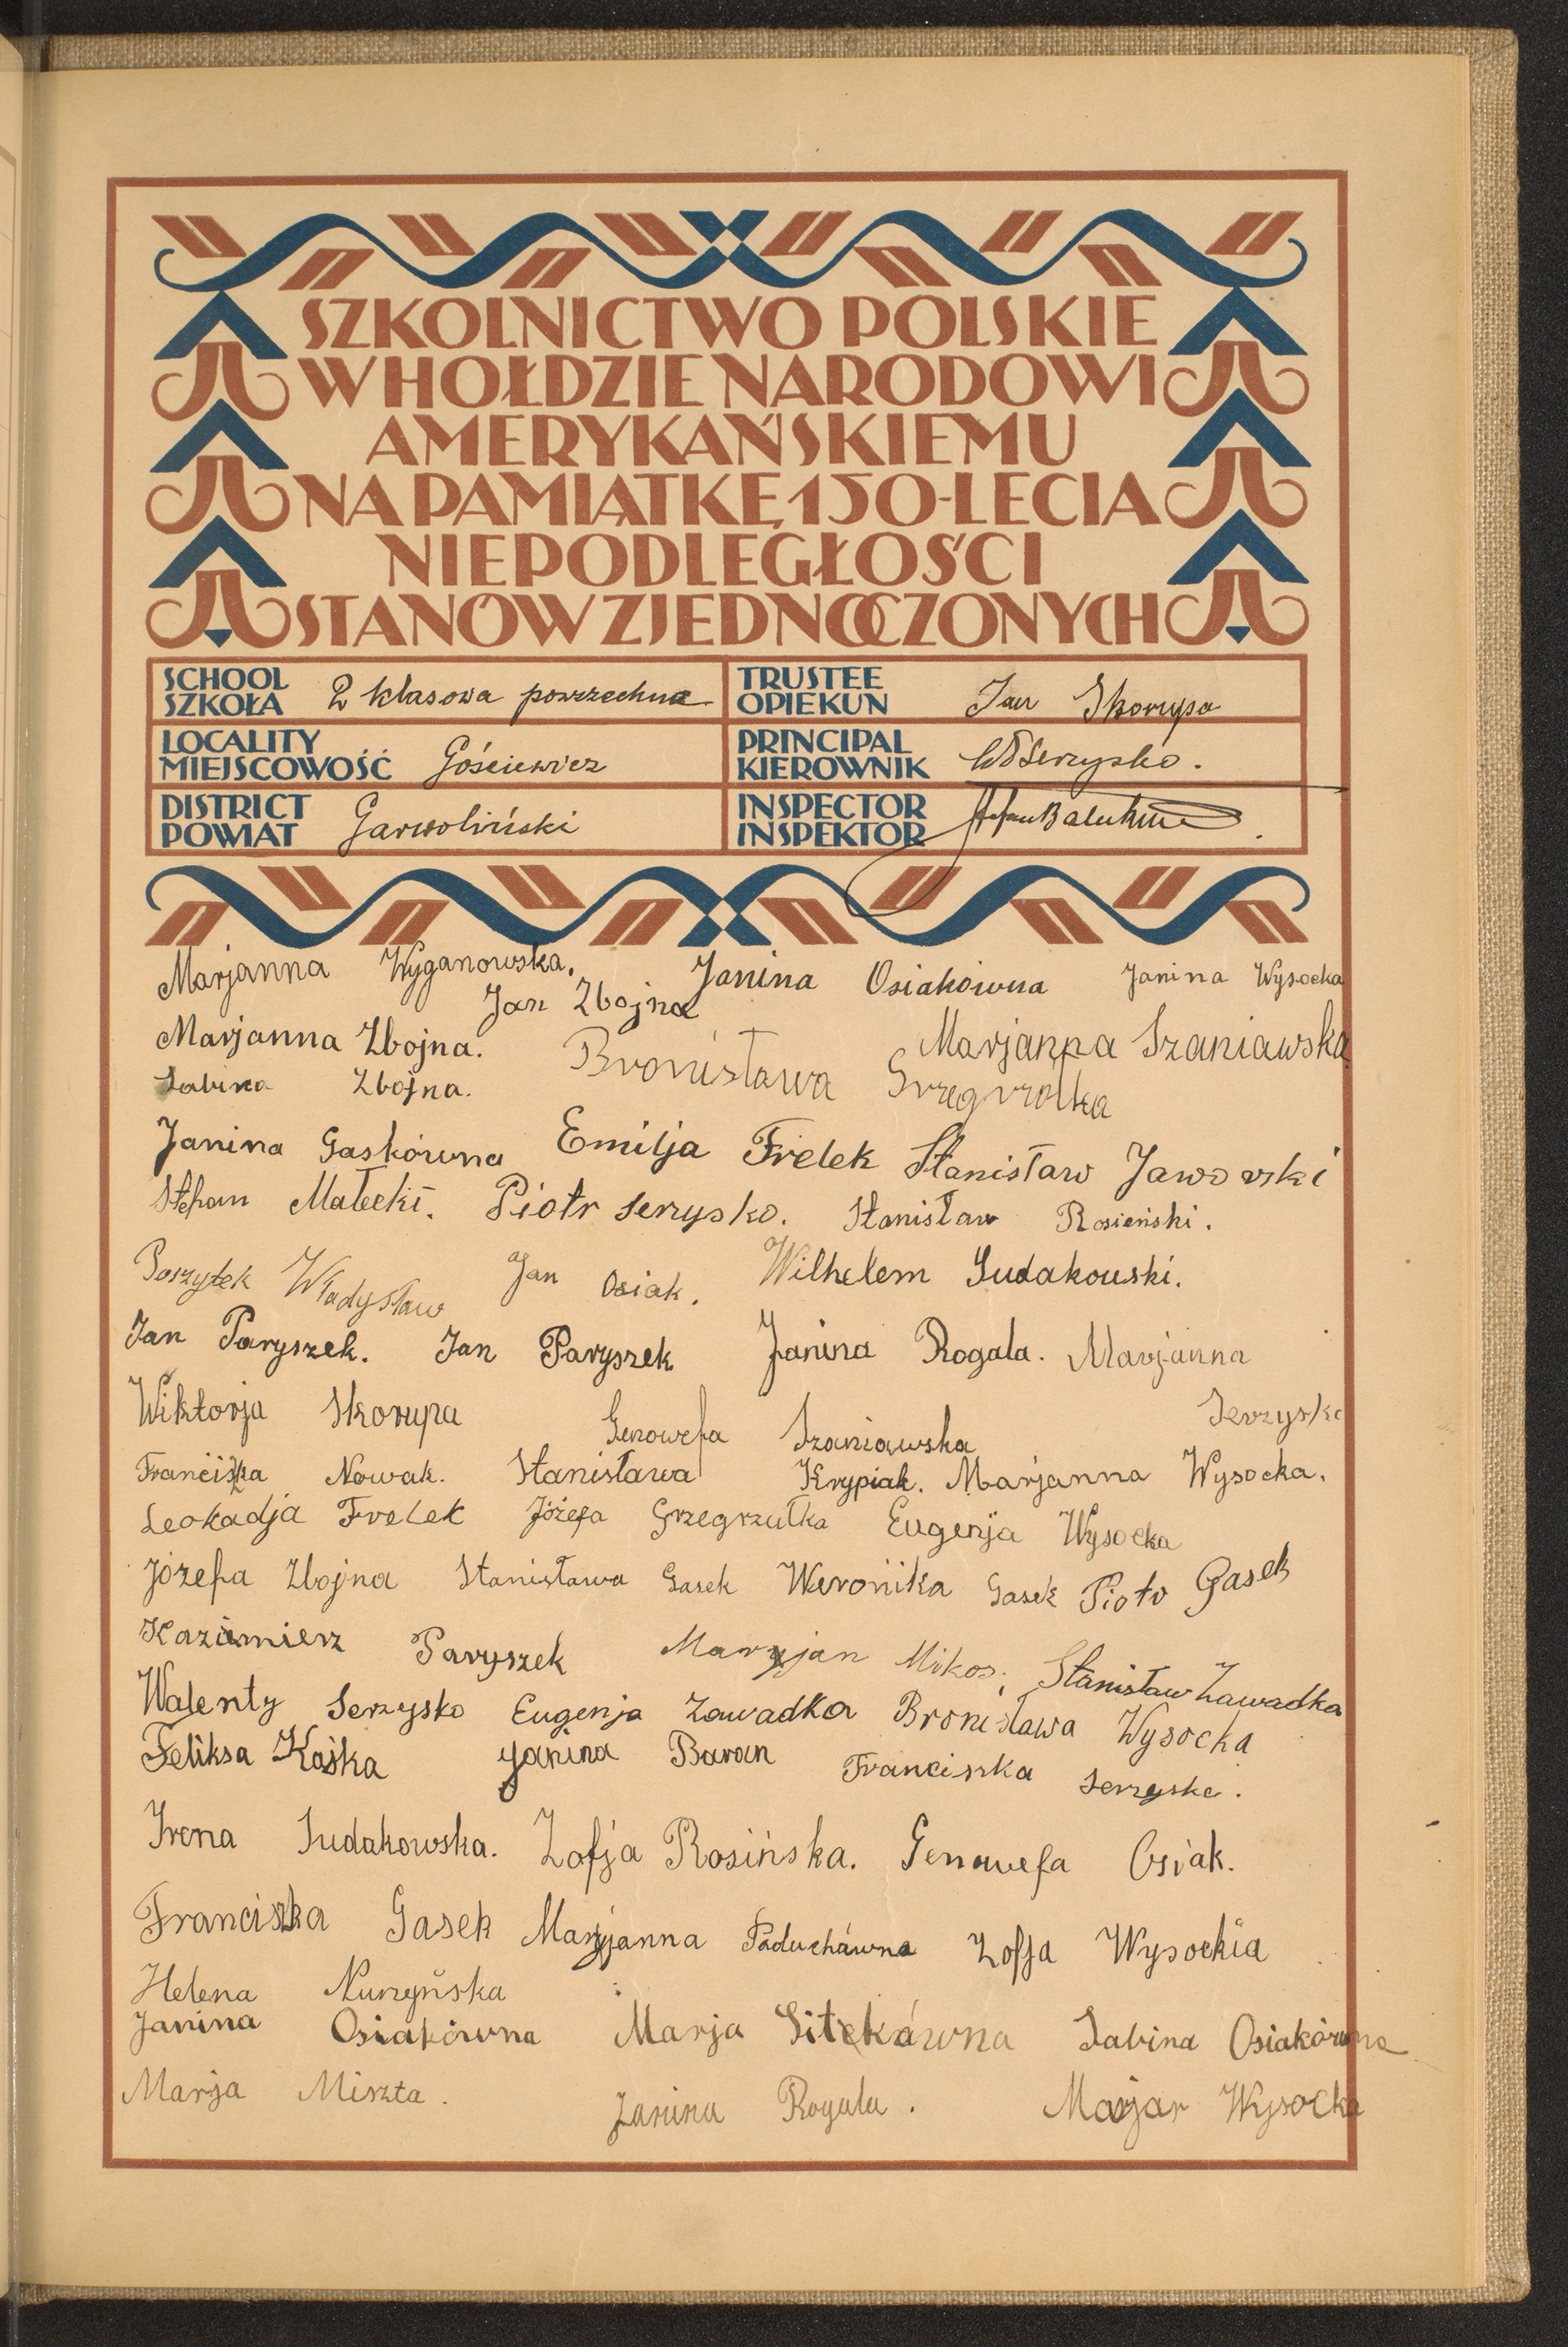 SZKOLNICTWO POLSKIE
W HOŁDZIE NARODOWI
AMERYKAŃSKIEMU
NA PAMIĄTKĘ 150-LECIA
NIEPODLEGŁOŚCI
STANÓW ZJEDNOCZONYCH
SCHOOL
SZKOŁA 2 klasowa powszechna
TRUSTEE
OPIEKUN Jan Skorupa
LOCALITY
MIEJSCOWOŚĆ Gościewicz
PRINCIPAL
KIEROWNIK WŁSerzysko.
DISTRICT
POWIAT Garwoliński
INSPECTOR
INSPEKTOR
Marjanna Wyganowska. Janina Osiakówna Janina Wysocka
Jan Zbojna
Marjanna Zbojna. Marjanna Szaniawska
Sabina Zbojna. Bronisława Grzegrzółka
Janina Gaskówna Emilja Frelek Stanisław Jaworski
Stefan Małecki. Piotr Serzysko. Stanisław Rosieński.
Poszytek Władysław Jan Osiak. Wilhelem Sudakowski.
Jan Paryszek. Jan Paryszek Janina Rogala. Marjanna
Wiktorja Skorupa Genowefa Szaniawska Serzysko
Franciszka Nowak. Stanisława Krypiak. Marjanna Wysocka.
Leokadja Frelek Józefa Grzegrzułka Eugenja Wysocka
Józefa Zbojna Stanisława Gasek Weronika Gasek Piotr Gasek
Kazimierz Paryszek Maryjan Mikos. Stanisław Zawadka
Walenty Serzysko Eugenja Zawadka Bronisława Wysocka
Feliksa Kaśka Janina Baran Franciszka Serzysko.
Irena Sudakowska. Zofja Rosińska. Genowefa Osiak.
Franciszka Gasek Maryjanna Paduchówna Zofja Wysockia
Helena Nurzyńska
Janina Osiakówna Marja Sitekówna Sabina Osiakówna
Marja Miszta. Janina Rogala. Marjan Wysocka